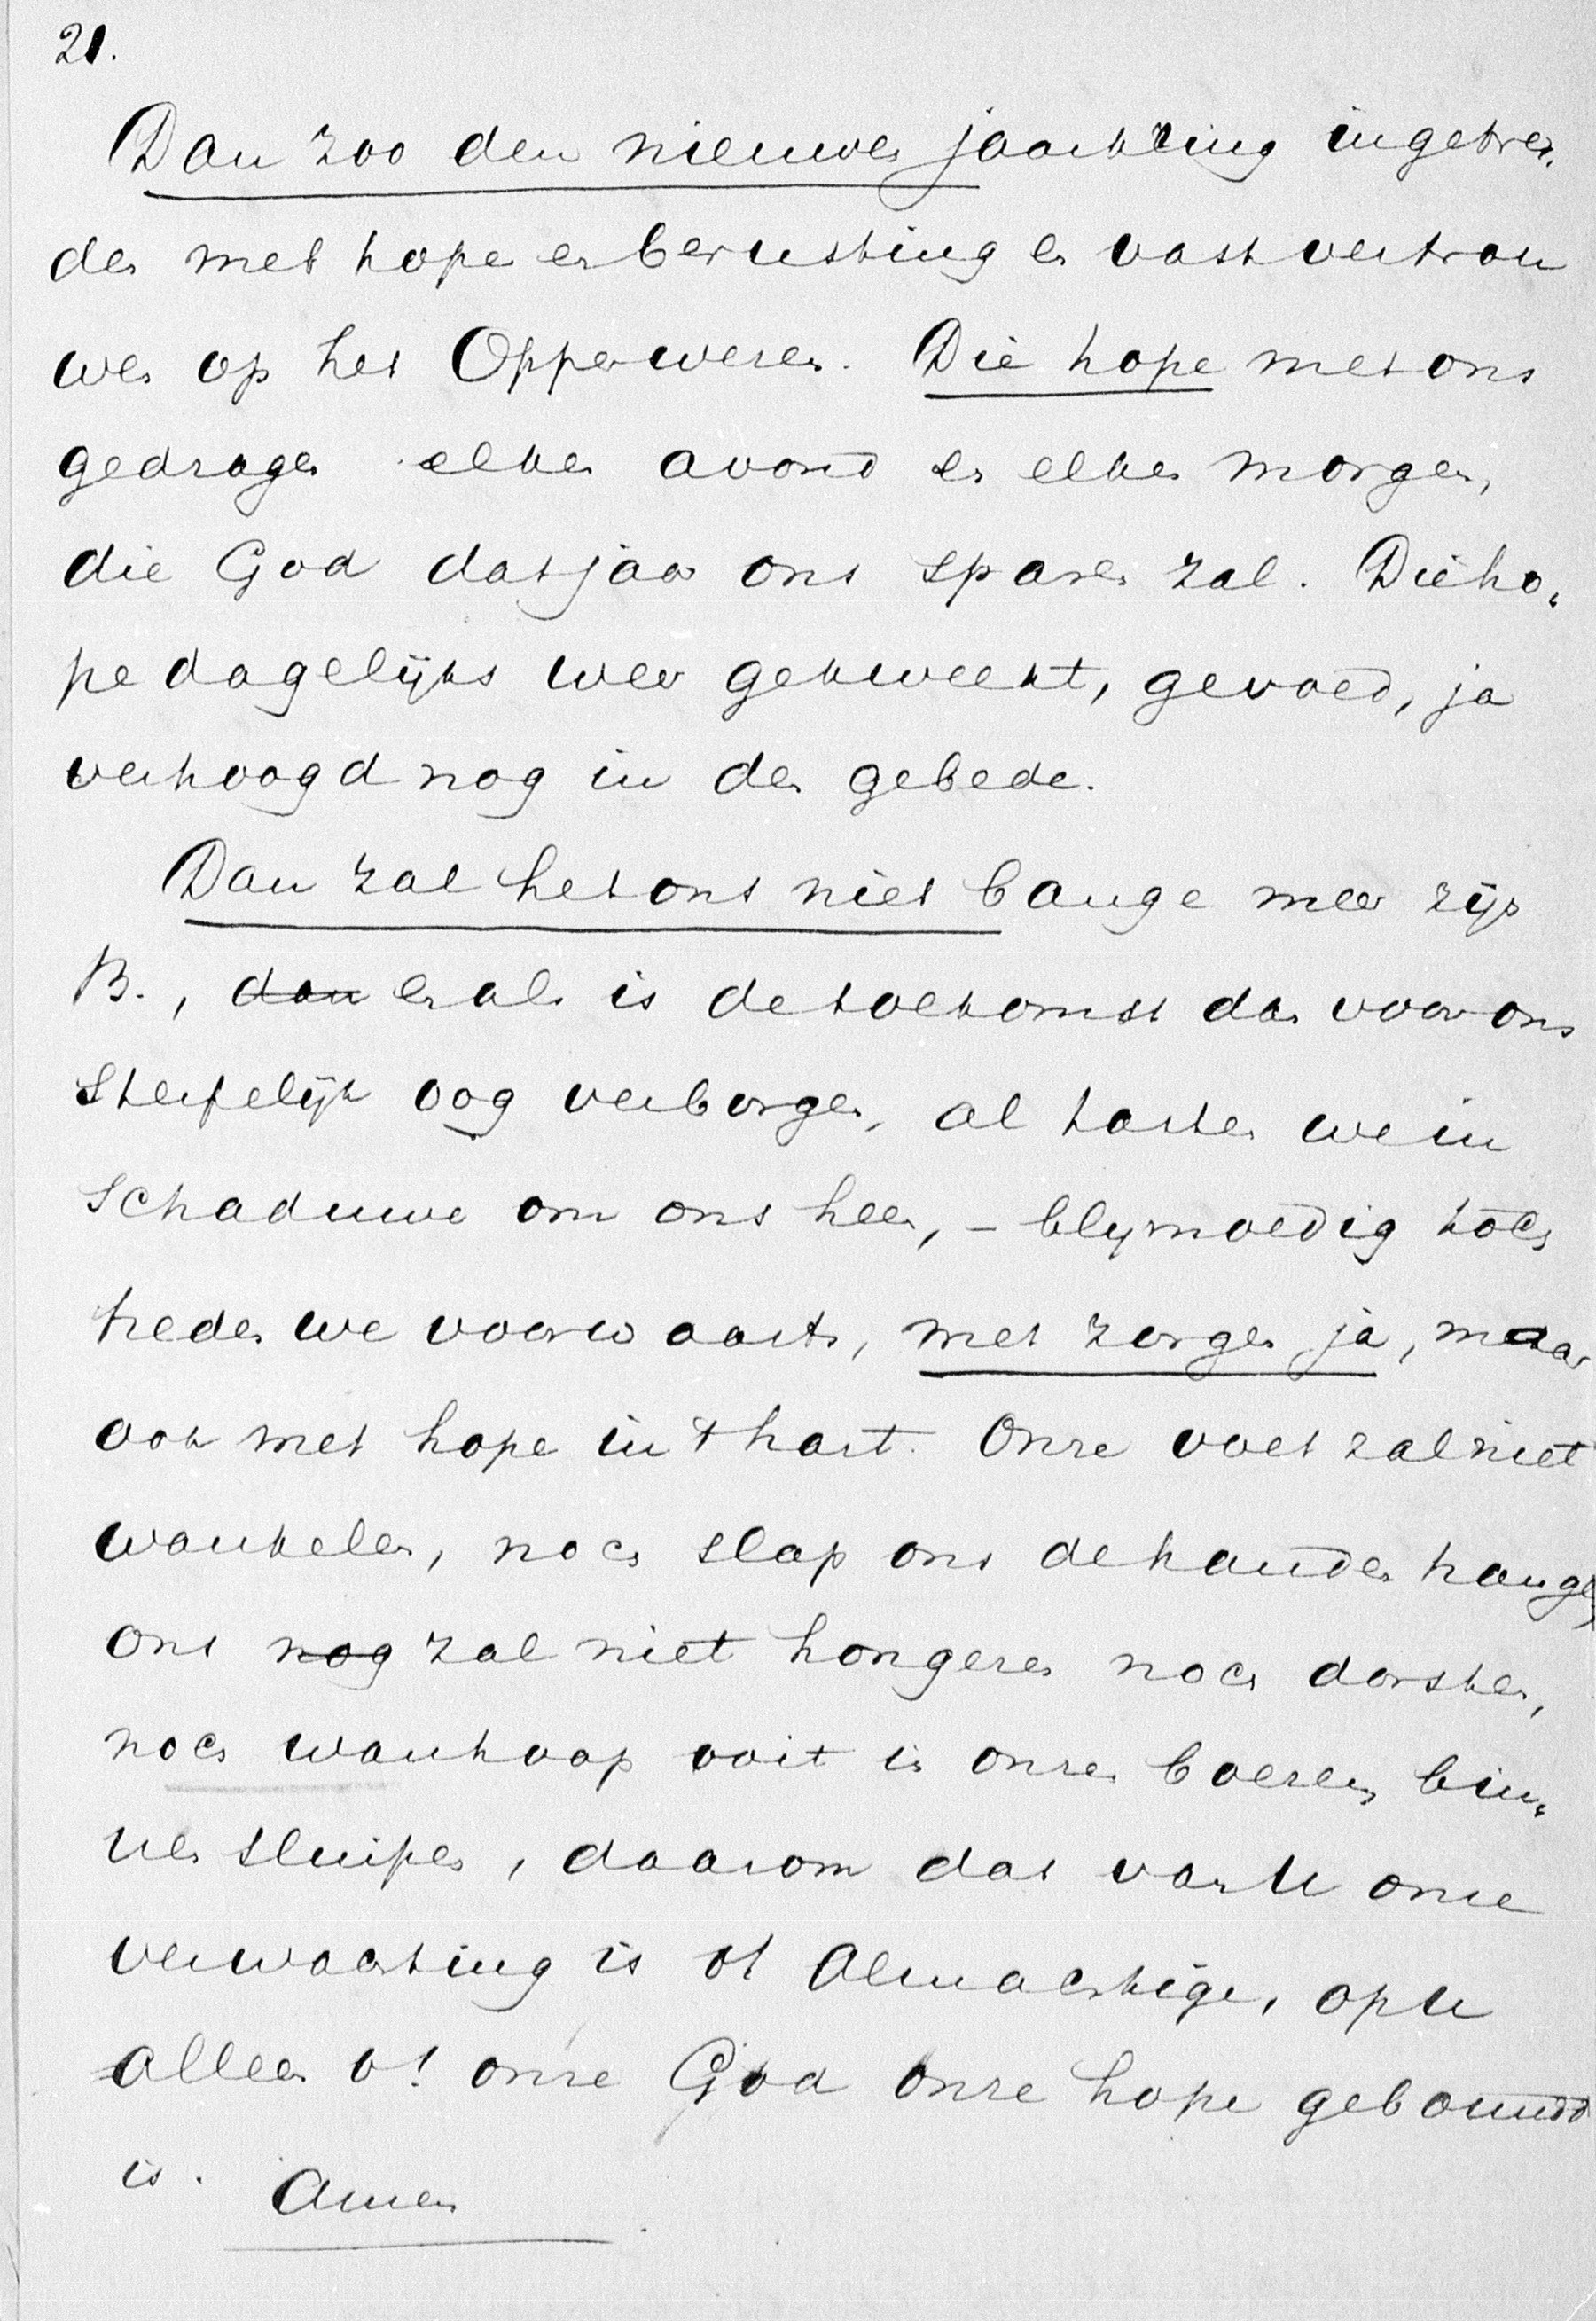 21.
Dan zoo den nieuwen jaarkring ingetre„
den met hope en berusting en vast vertrou
wen op het Opperwezen. Die hope met ons
gedragen elken avond en elken morgen,
die God dat jaar ons sparen zal. Die ho„
pe dagelijks weer gekweekt, gevoed, ja
verhoogd nog in den gebede.
Dan zal het ons niet bange meer zijn
B., dan en al is de toekomst dan voor ons
sterfelijk oog verborgen, al tasten we in
schaduwe om ons heen, – blijmoedig toch
treden we voorwaarts, met zorgen ja, maar
ook met hope in 't hart. Onze voet zal niet
wankelen, noch slap ons de handen hangen
ons nog zal niet hongeren noch dorsten,
noch wanhoop ooit in onze boezem bin„
nen sluipen, daarom dat van U onze
verwachting is o! Almachtige, op U
alleen o! onze God onze hope gebouwd
is. Amen